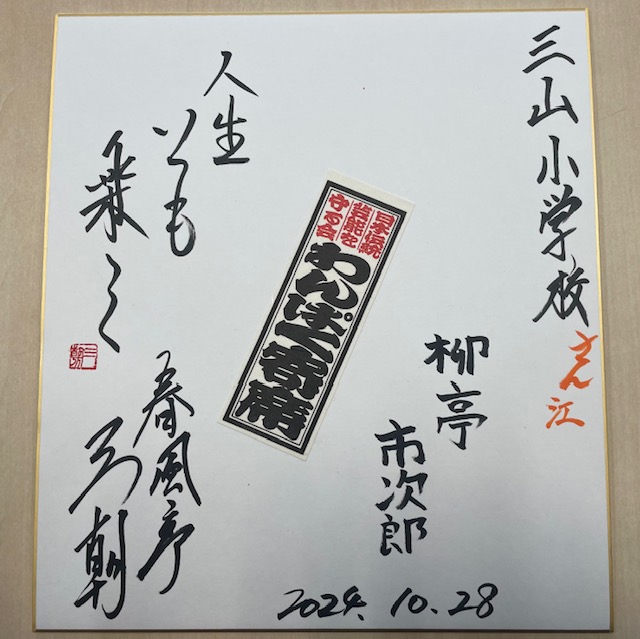 三山小学校
さん江
柳亭
市次郎
日本伝統
芸能を
守る会
わんぱく寄席
人生
いつも
春風亭
三朝
三朝
2024.10.28